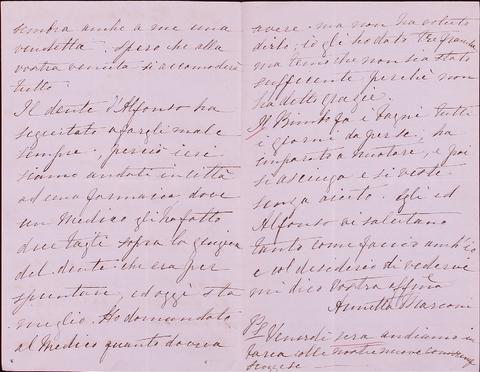 sembra anche a me una
vendetta. Spero che alla
vostra venuta si accomoderà
tutto.
Il dente d'Alfonso ha
seguitato a fargli male
sempre, perciò ieri
siamo andati in città
ad una farmacia dove
un Medico gli ha fatto
due tagli sopra la gengiva
del dente che era per
spuntare, ed oggi sta
meglio. Ho domandato
al Medico quanto doveva
avere ma non ha voluto
dirlo, io gli ho dato tre franchi
ma temo che non sia stato
sufficente perchè non
ha detto grazie.
Il Bimbo fa i bagni tutti
i giorni da per se, ha
imparato a nuotare, e poi
si asciuga e si veste
senza aiuto. Egli ed
Alfonso vi salutano
tanto come faccio anch'io
e col desiderio di vedervi
mi dico vostra affma
Annetta Marconi
PS Venerdì sera andiamo in
barca colle nostre nuove